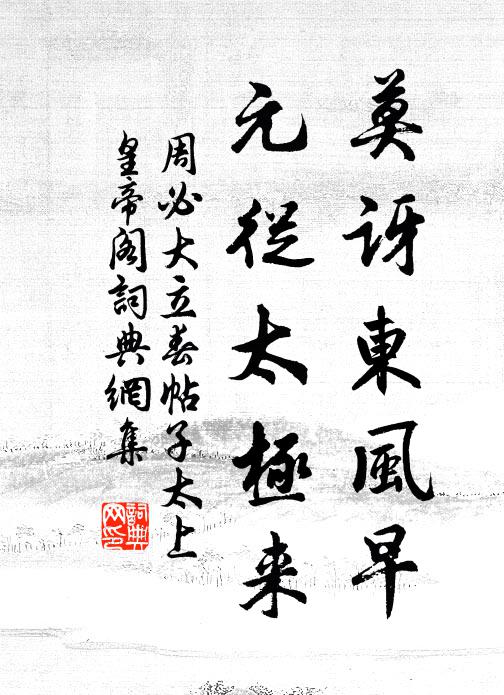 莫訝東風早
元從太極来
周必大立春帖子太上
皇帝閣詞典網集
詞典网印